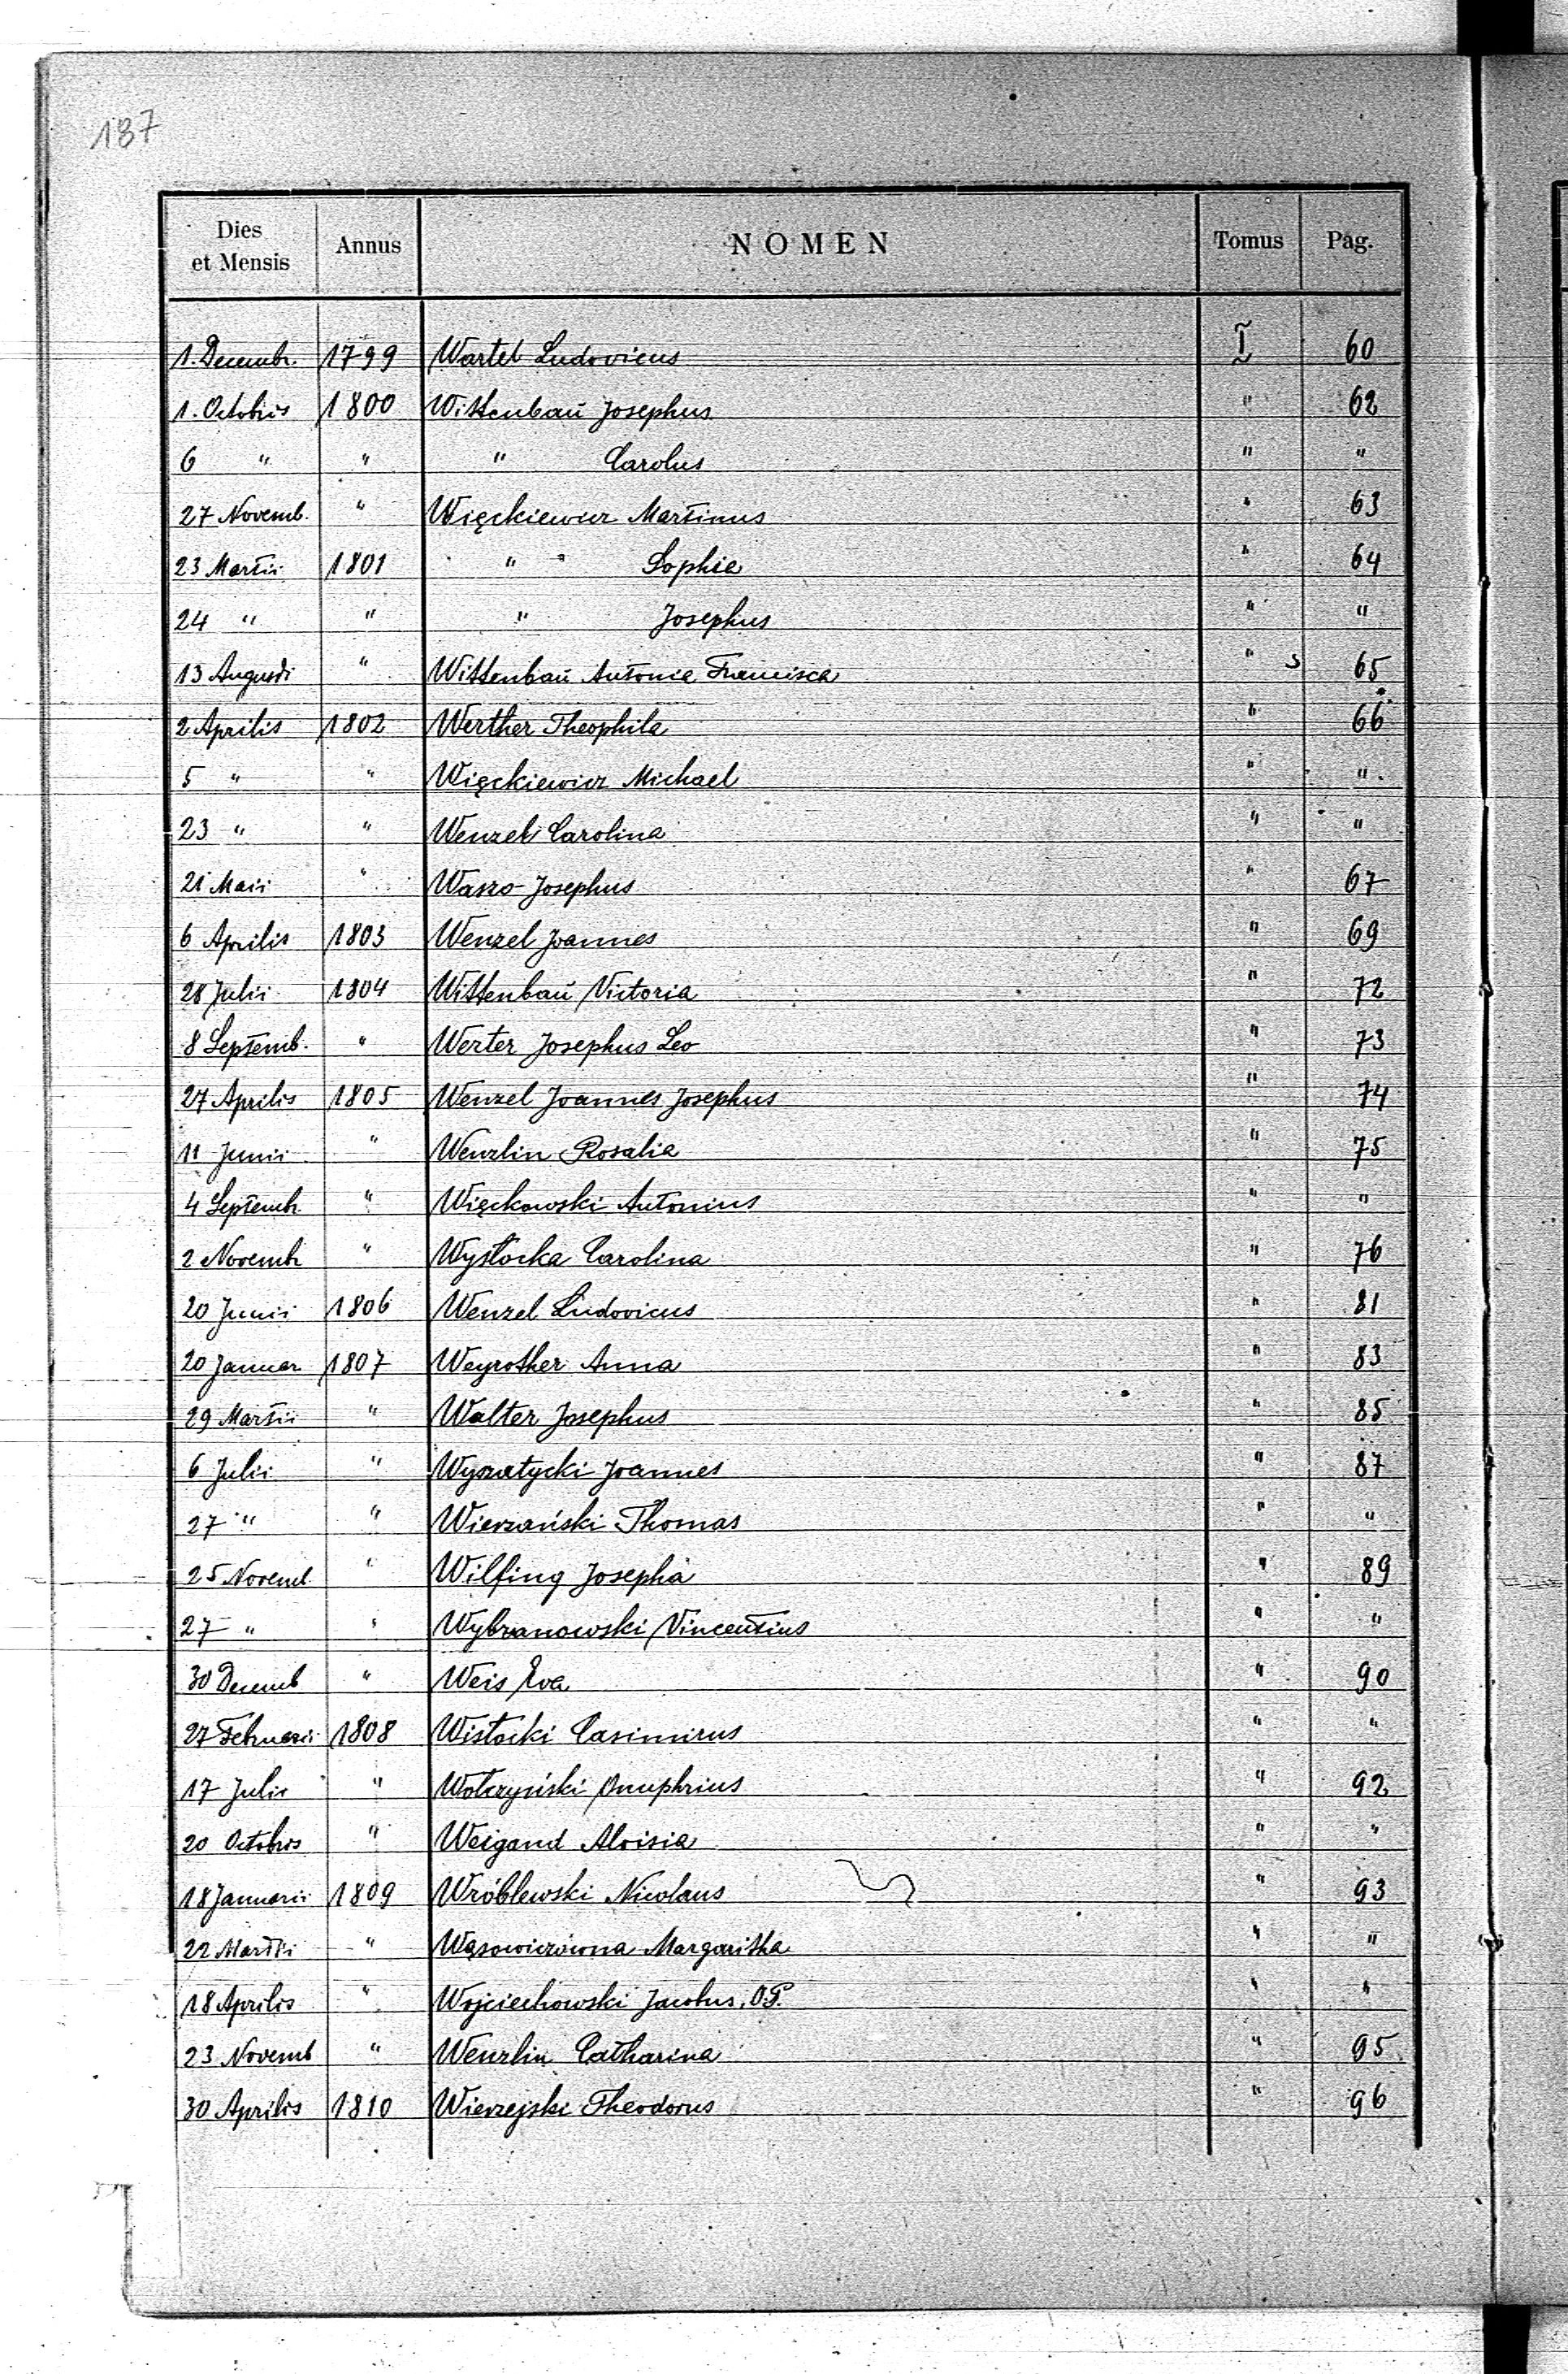 187
Dies et Mensis Annus NOMEN Tomus Pag.
1. Decembr. 1799 Wartel Ludovicus I 60
1. Octobris 1800 Wittenbaŭ Josephus " 62
6 " " " Carolus " "
27 Novemb. " Więckiewicz Martinus " 63
23 Martii 1801 " " Sophia " 64
24 " " " Josephus " "
13 Augusti " Wittenbaŭ Antonia Francisca " 65
2 Aprilis 1802 Werther Theophila " 66
5 " " Więckiewicz Michael " "
23 " " Wenzel Carolina " "
21 Maii " Waszo Josephus " 67
6 Aprilis 1803 Wenzel Joannes " 69
28 Julii 1804 Wittenbaŭ Victoria " 72
8 Septemb. " Werter Josephus Leo " 73
27 Aprilis 1805 Wenzel Joannes Josephus " 74
11 Junii " Wenzlin Rosalia " 75
4 Septembr " Więckowski Antonius " "
2 Novembr " Wysłocka Carolina " 76
20 Junii 1806 Wenzel Ludovicus " 81
20 Januar 1807 Weyrother Anna " 83
29 Martii " Walter Josephus " 85
6 Julii " Wyszatycki Joannes " 87
27 " " Wierzański Thomas " "
25 Novemb. " Wilfing Josepha " 89
27 " " Wybranowski Vincentius " "
30 Decemb " Weis Eva " 90
27 Februarii 1808 Wisłocki Casimirus " "
17 Julii " Wołczyński Onuphrius " 92
20 Octobris " Weigand Aloisia " "
18 Januarii 1809 Wróblewski Nicolaus " 93
22 Martii " Wąsowiczówna Margaritha " "
18 Aprilis " Wojciechowski Jacobus, O.P. " "
23 Novemb " Wenzlin Catharina " 95
30 Aprilis 1810 Wierzejski Theodorus " 96